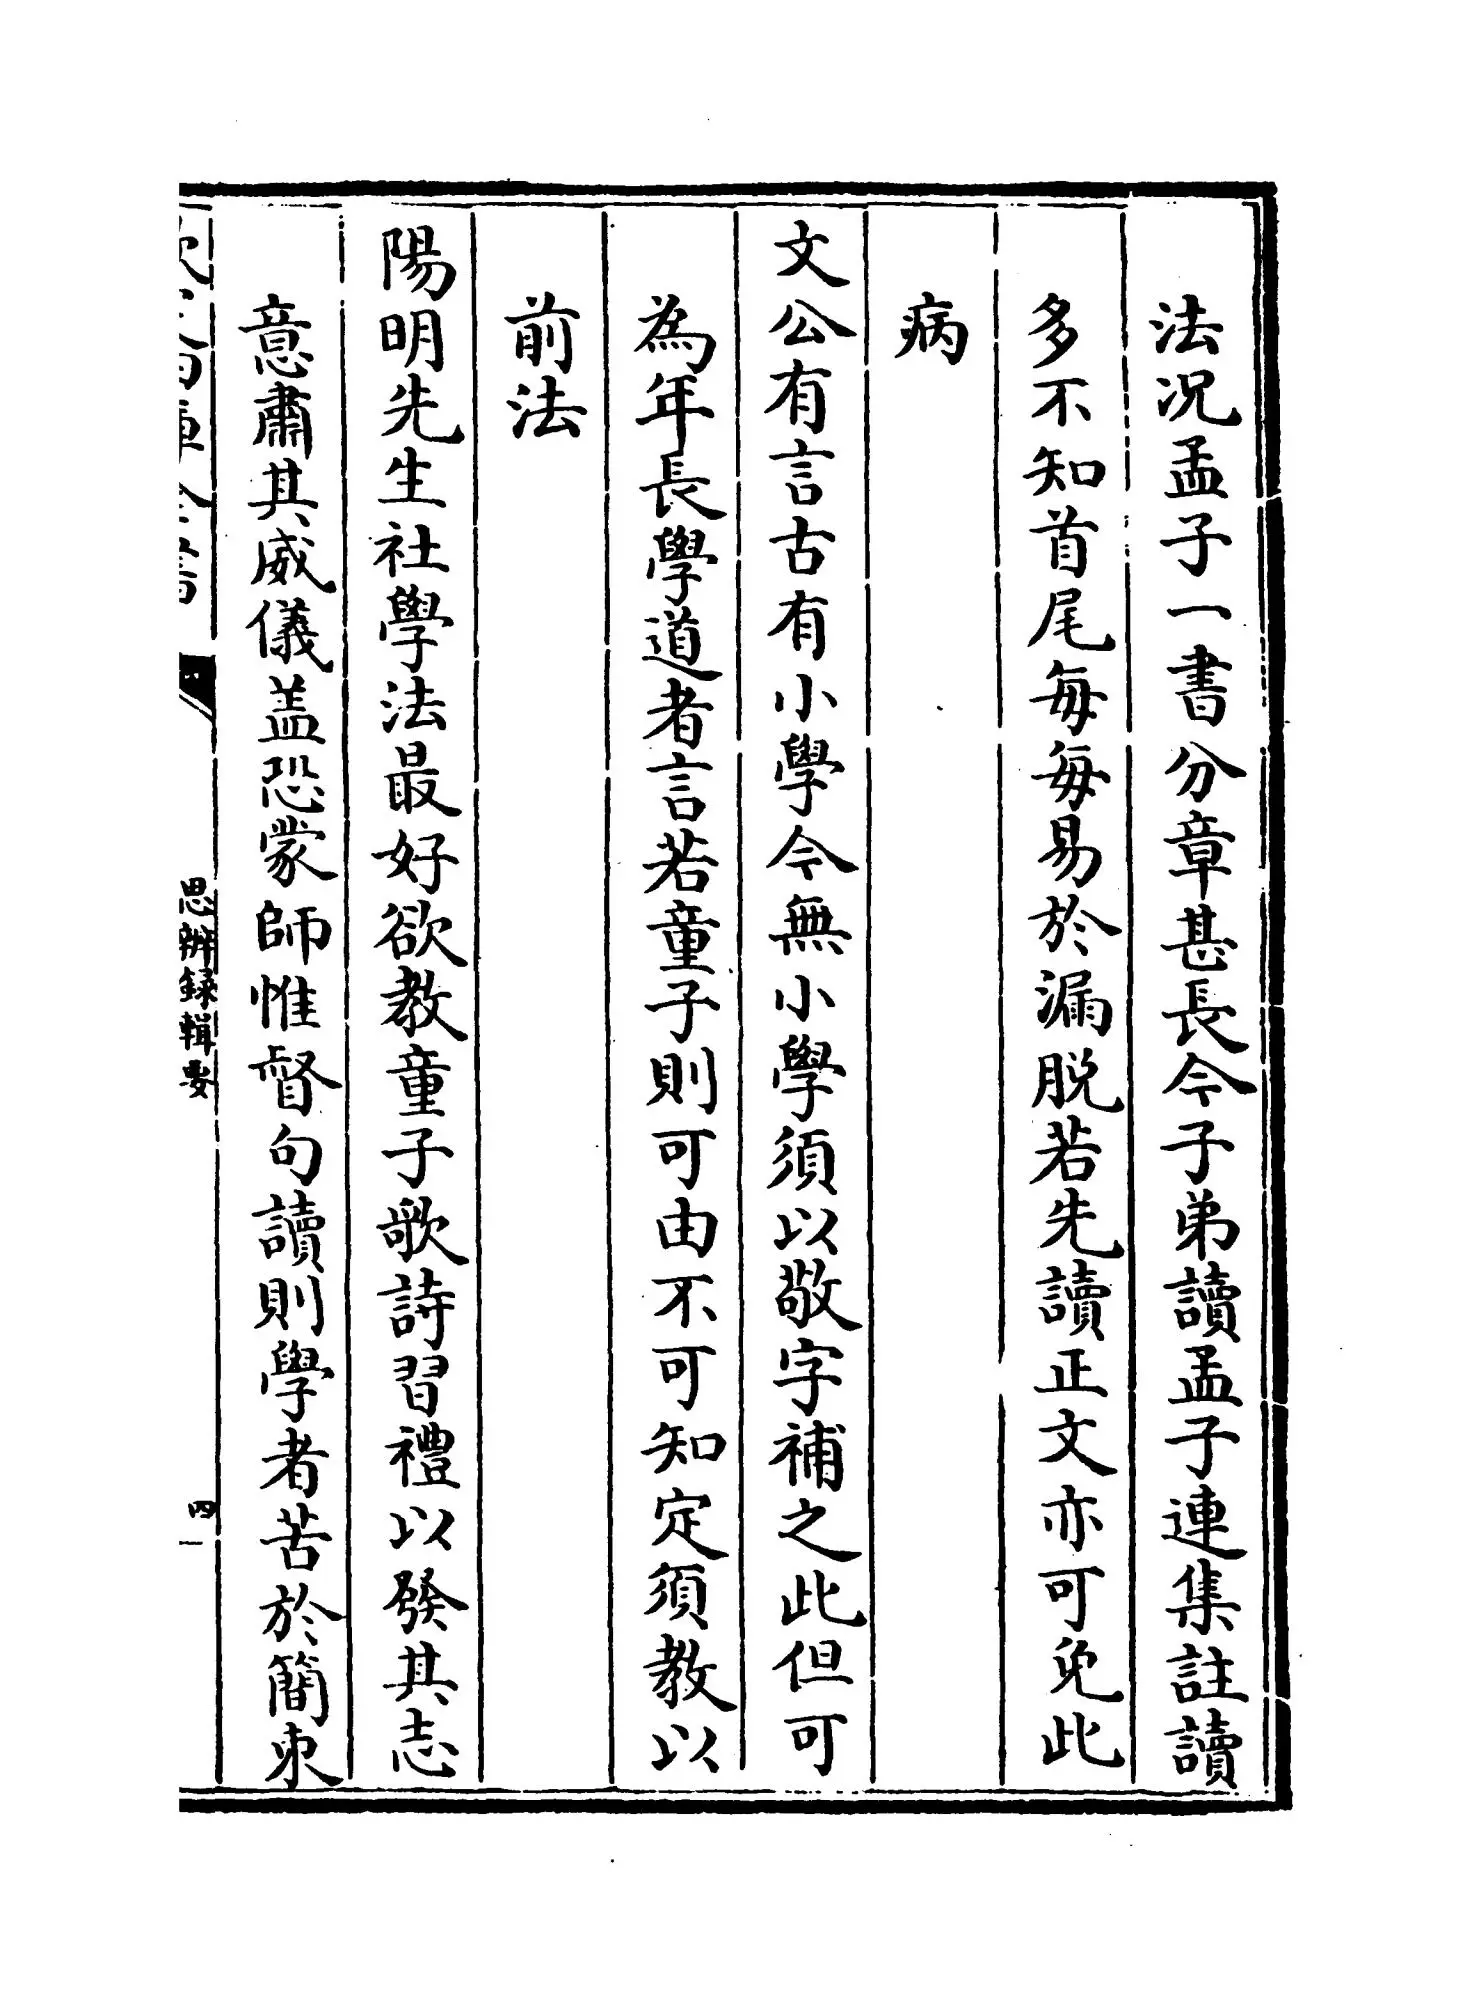 法况孟子一書分章甚長今子弟讀孟子連集註讀
多不知首尾每每易於漏脱若先讀正文亦可免此
病
文公有言古有小學今無小學須以敬字補之此但可
為年長學道者言若童子則可由不可知定須教以
前法
陽明先生社學法最好欲教童子歌詩習禮以發其志
意肅其威儀盖恐蒙師惟督句讀則學者苦於簡束
思辨録輯要
四